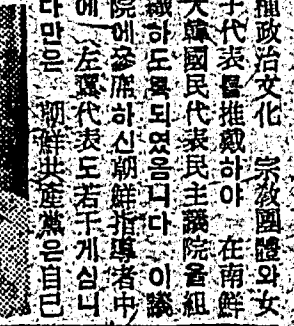 種政治文化 宗敎團體와女
子代表를推戴하야 在南鮮
大韓國民代表民主議院을組
織하도록되엿옴니다 이議
院에參席하신朝鮮指導者中
에 左翼代表도若干게심니
다만은 朝鮮共產黨은自己